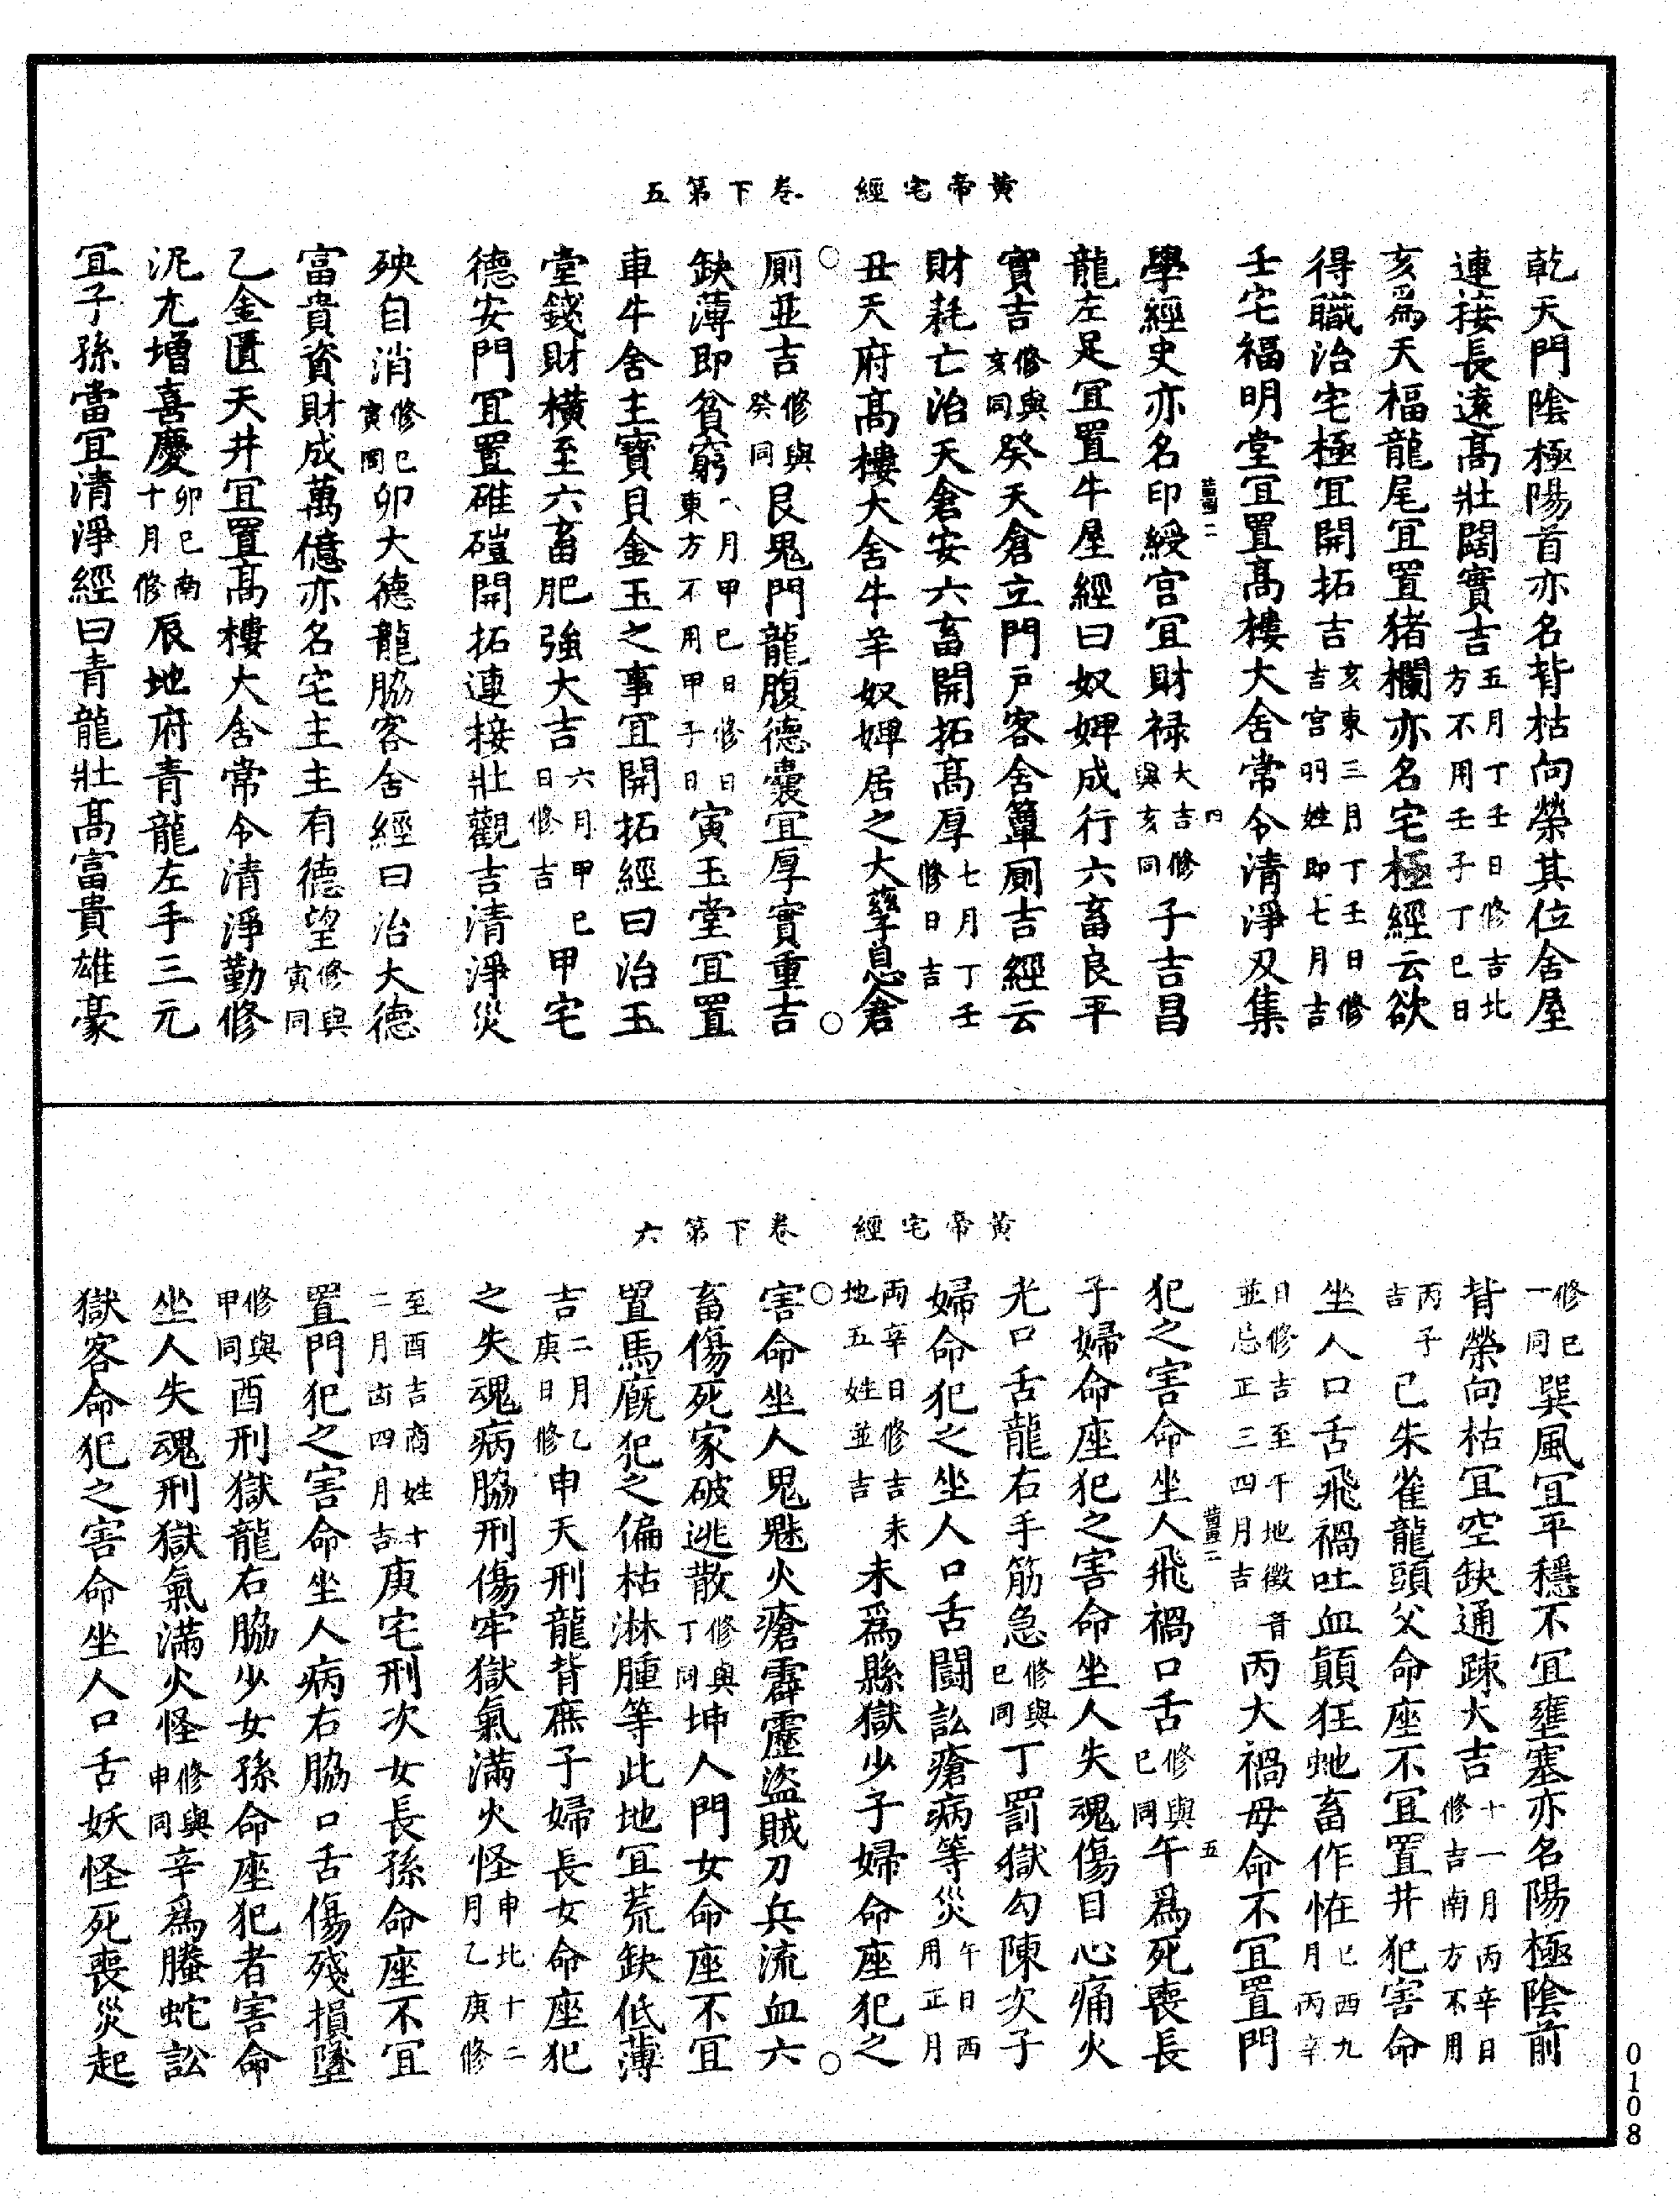 黃帝宅經　卷下第五
乾天門陰極陽首亦名背枯向榮其位舍屋
連接長遠高壯闊實吉五月丁壬日修吉北方不用壬子丁巳日
亥爲天福龍尾宜置猪欄亦名宅極經云欲
得職治宅極宜開拓吉亥東三月丁壬日修吉宫羽姓即七月吉
壬宅福明堂宜置高樓大舍常令清淨及集
學經史亦名印綬宫宜財禄大吉修與亥同子吉昌
龍左足宜置牛屋經曰奴婢成行六畜良平
實吉修與亥同癸天倉立門戸客舍簟厠吉經云
財耗亡治天倉安六畜開拓高厚七月丁壬修日吉
丑天府高樓大舍牛羊奴婢居之大孳息倉
厠並吉修與癸同艮鬼門龍腹德囊宜厚實重吉
缺薄即貧窮八月甲巳日修日東方不用甲子日寅玉堂宜置
車牛舍主寶貝金玉之事宜開拓經曰治玉
堂錢財橫至六畜肥強大吉六月甲巳日修吉甲宅
德安門宜置碓磑開拓連接壯觀吉清淨災
殃自消修巳寅同卯大德龍脇客舍經曰治大德
富貴資財成萬億亦名宅主主有德望修與寅同
乙金匱天井宜置高樓大舍常令清淨勤修
泥尢增喜慶卯巳南十月修辰地府青龍左手三元
宜子孫當宜清淨經曰青龍壯高富貴雄豪
黃帝宅經　卷下第六
修巳一同巽風宜平穩不宜壅塞亦名陽極陰前
背榮向枯宜空缺通踈大吉十一月丙辛日修吉南方不用
丙子吉巳朱雀龍頭父命座不宜置井犯害命
坐人口舌飛禍吐血顚狂虵畜作怪巳西九月丙辛
日修吉至午地徵音並忌正三四月吉丙大禍母命不宜置門
犯之害命坐人飛禍口舌修與巳同午爲死喪長
子婦命座犯之害命坐人失魂傷目心痛火
光口舌龍右手筋急修與巳同丁罰獄勾陳次子
婦命犯之坐人口舌鬭訟瘡病等災午日西用正月
丙辛日修吉未地五姓並吉未爲縣獄少子婦命座犯之
害命坐人鬼魅火瘡霹靂盜賊刀兵流血六
畜傷死家破逃散修與丁同坤人門女命座不宜
置馬廐犯之偏枯淋腫等此地宜荒缺低薄
吉二月乙庚日修申天刑龍背庶子婦長女命座犯
之失魂病脇刑傷牢獄氣滿火怪申北十二月乙庚修
至酉吉商姓十二月㐫四月吉庚宅刑次女長孫命座不宜
置門犯之害命坐人病右脇口舌傷殘損墜
修與甲同酉刑獄龍右脇少女孫命座犯者害命
坐人失魂刑獄氣滿火怪修與申同辛爲螣蛇訟
獄客命犯之害命坐人口舌妖怪死喪災起
0108